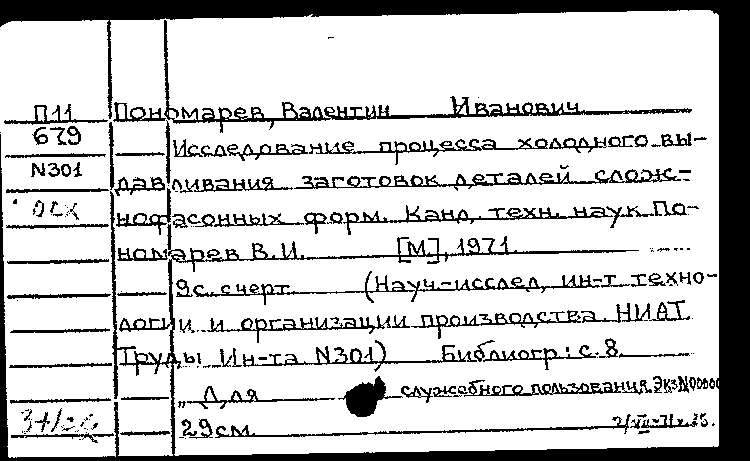 П11 Пономарев, Валентин Иванович
679
Исследование процесса холодного вы-
N301
давливания заготовок деталей слож-
осх
нофасонных форм. Канд. техн. наук По-
номарев В.И. [М], 1971.
9с. счерт. (Науч-исслед, ин-т техно-
логии и организации производства. НИАТ.
Труды Ин-та N301) Библиогр: с. 8.
„Для служебного пользования. Экз N00000
29см.